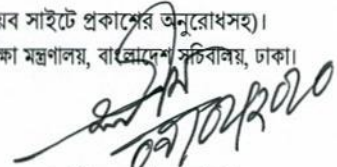 য়ব সাইটে প্রকাশের অনুরোধসহ)।
ক্ষা মন্ত্রণালয়, বাংলাদেশ সচিবালয়, ঢাকা।